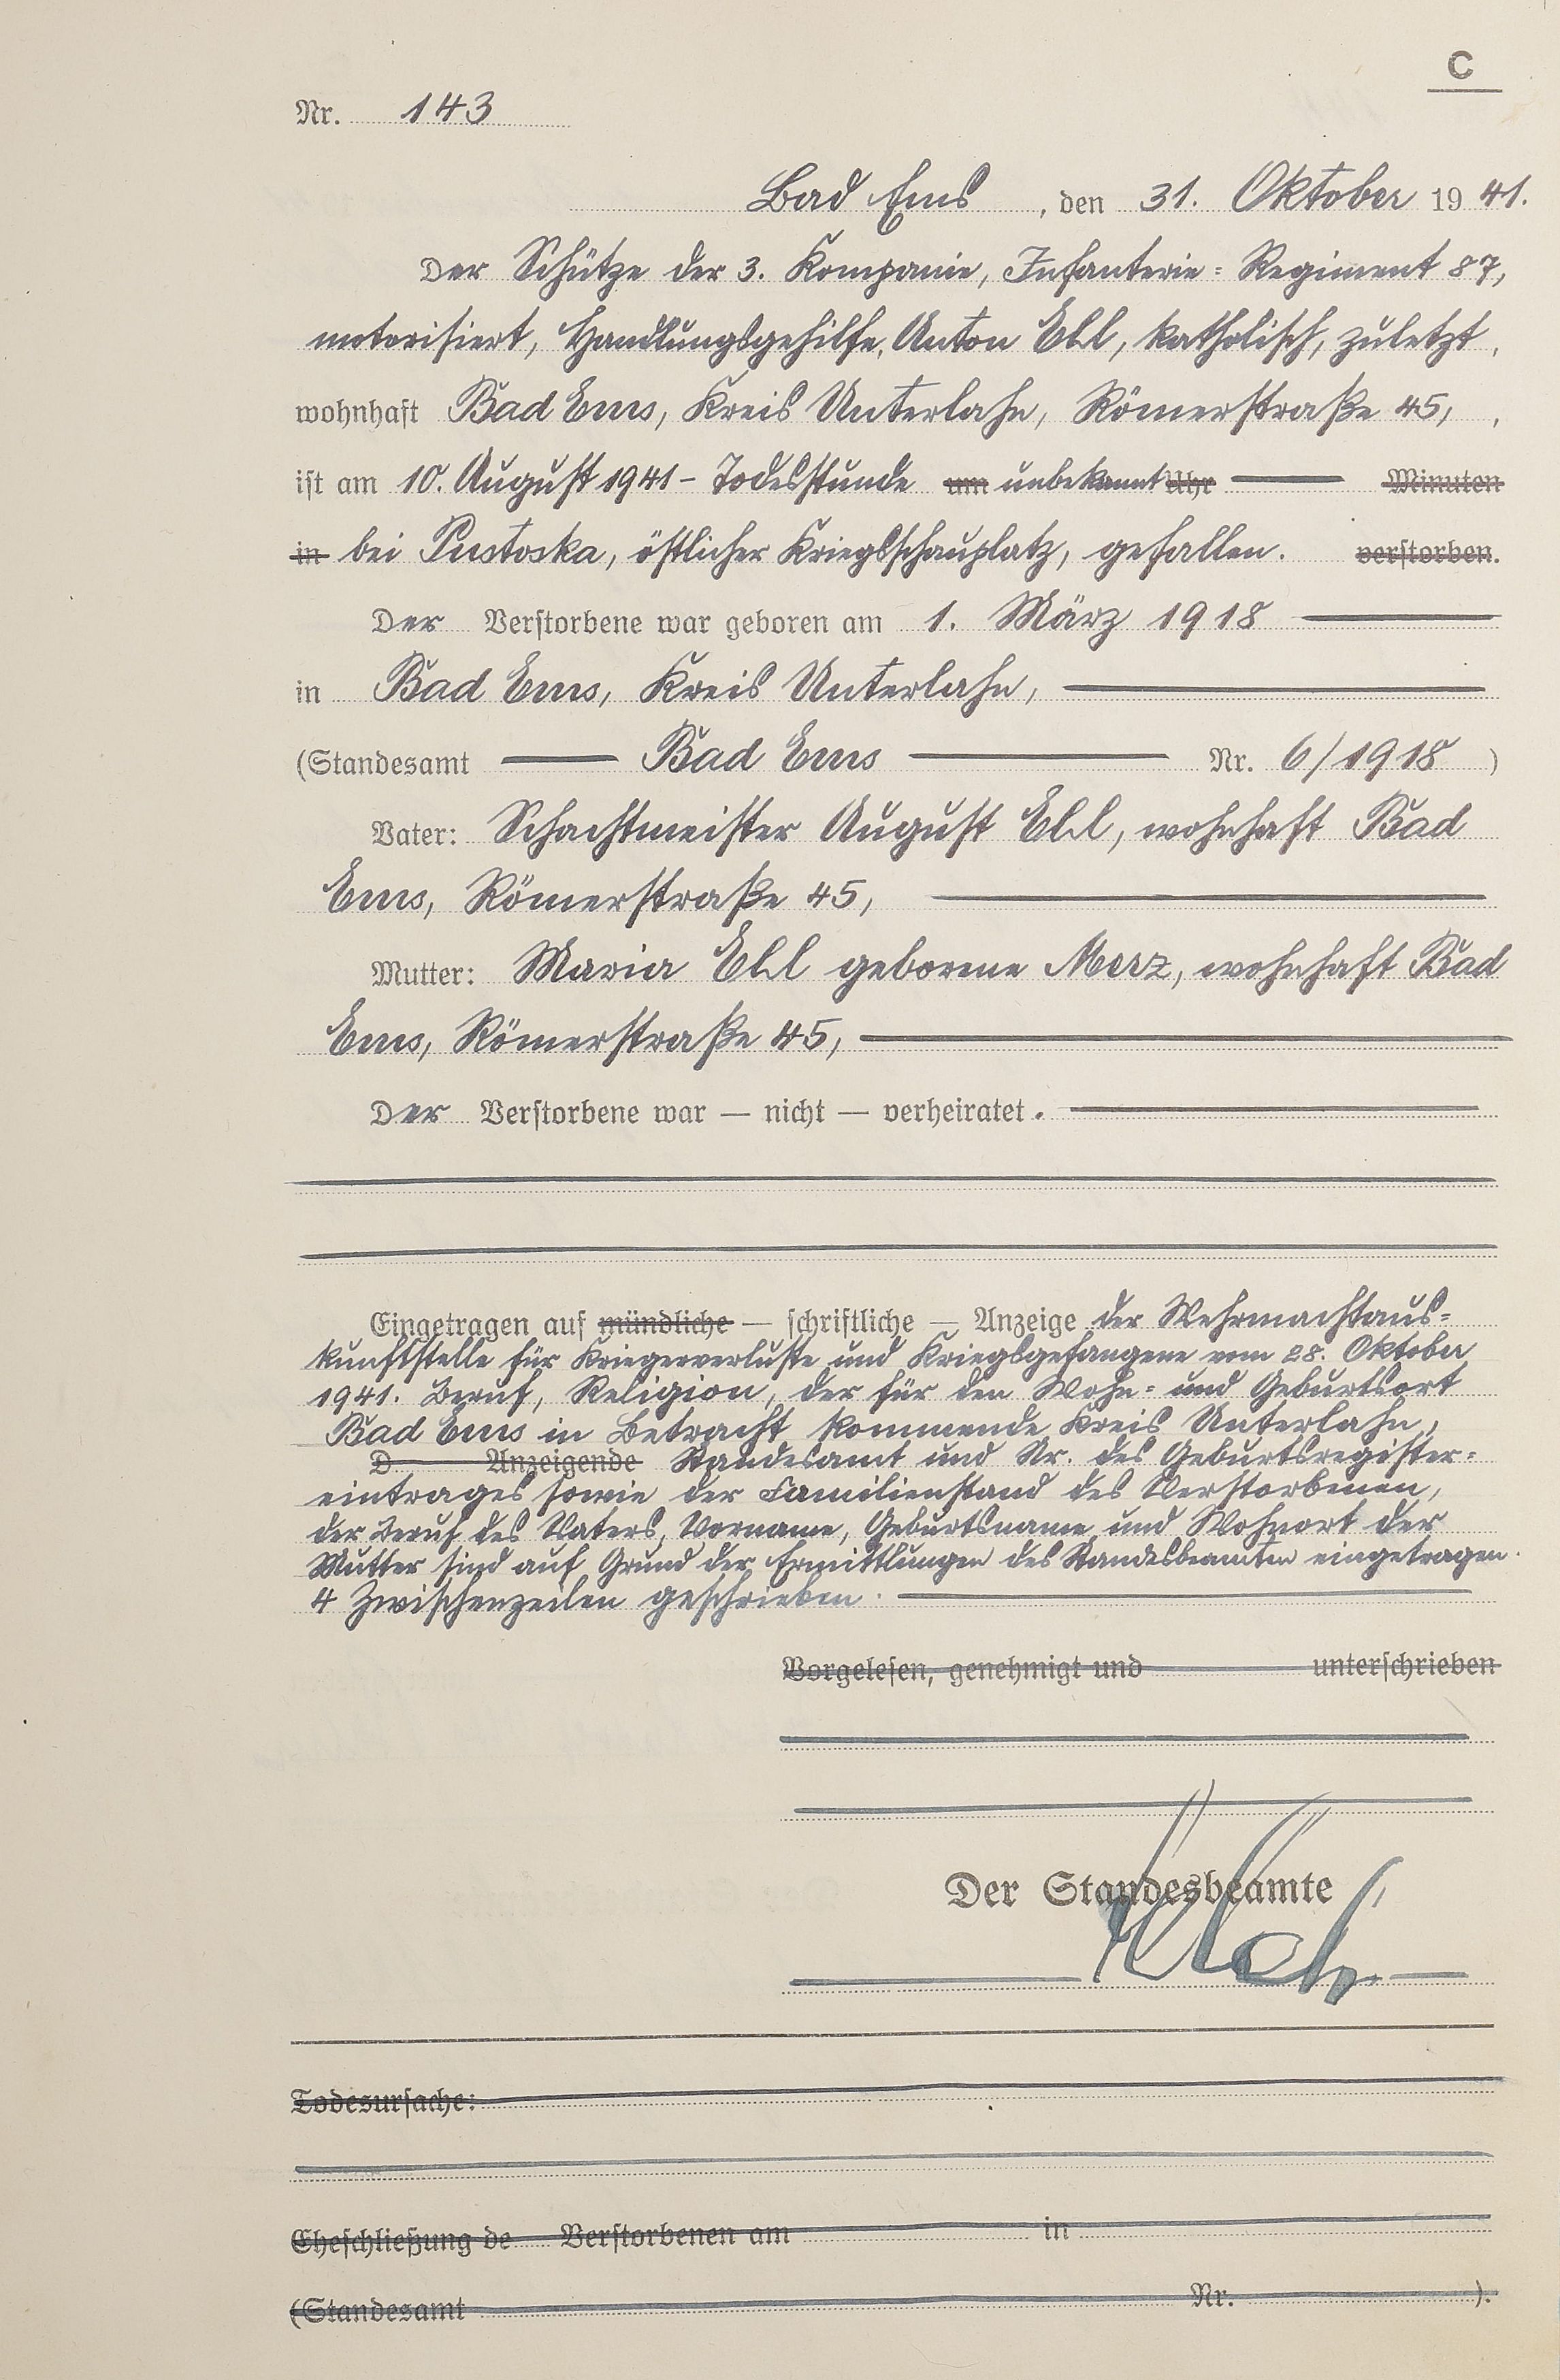 C
Nr. 143
Bad Ems, den 31. Oktober 1941.
Der Schütze der 3. Kompanie, Infanterie-Regiment 87,
motorisiert, Handlungsgehilfe, Anton Ehl, katholisch, zuletzt,
wohnhaft Bad Ems, Kreis Unterlahn, Römerstraße 45, ,
ist am 10. August 1941 - Todesstunde um unbekannt Uhr Minuten
in bei Pustoska, östlicher Kriegsschauplatz, gefallen. verstorben.
Der Verstorbene war geboren am 1. März 1918
in Bad Ems, Kreis Unterlahn,
(Standesamt Bad Ems Nr. 6/1918)
Vater: Schachtmeister August Ehl, wohnhaft Bad
Ems, Römerstraße 45,
Mutter: Maria Ehl geborene Merz, wohnhaft Bad
Ems, Römerstraße 45,
Der Verstorbene war — nicht — verheiratet.
Eingetragen auf mündliche — schriftliche — Anzeige der Wehrmachtaus-
kunftstelle für Kriegerverluste und Kriegsgefangene vom 28. Oktober
1941. Beruf, Religion, der für den Wohn- und Geburtsort
Bad Ems in Betracht kommende Kreis Unterlahn,
D Anzeigende Standesamt und Nr. des Geburtsregister-
eintrages sowie der Familienstand des Verstorbenen,
der Beruf des Vaters, Vorname, Geburtsname und Wohnort der
Mutter sind auf Grund der Ermittlungen des Standesbeamten eingetragen.
4 Zwischenzeilen geschrieben.
Vorgelesen, genehmigt und unterschrieben
Der Standesbeamte
Todesursache:
Eheschließung de Verstorbenen am in
(Standesamt Nr. ).